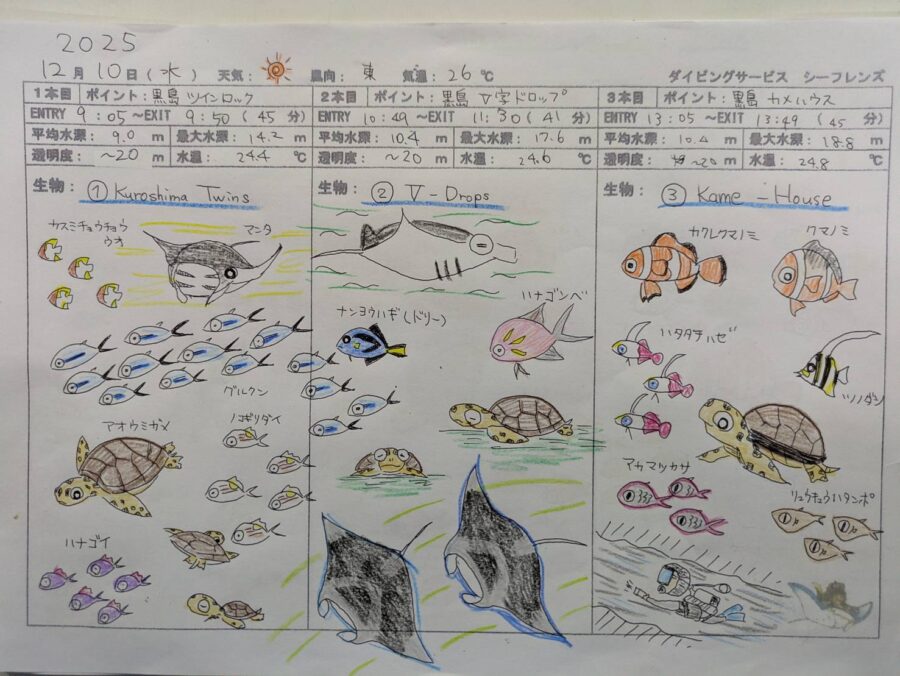 2025
12月 10日(水) 天気: 風向: 東 気温: 26 ℃ ダイビングサービス シーフレンズ
1本目 ポイント: 黒島 ツインロック
ENTRY 9:05 ~EXIT 9:50 (45 分)
平均水深: 9.0 m 最大水深: 14.2 m
透明度: ~20 m 水温: 24.4 ℃
生物: ① Kuroshima Twins
カスミチョウチョウ
ウオ
マンタ
グルクン
アオウミガメ
ノコギリダイ
ハナゴイ
2本目 ポイント: 黒島 V字ドロップ
ENTRY 10:49 ~EXIT 11:30 (41 分)
平均水深: 10.4 m 最大水深: 17.6 m
透明度: ~20 m 水温: 24.6 ℃
生物: ② V-Drops
ハナゴンベ
ナンヨウハギ(ドリー)
3本目 ポイント: 黒島 カメハウス
ENTRY 13:05 ~EXIT 13:49 (45 分)
平均水深: 10.4 m 最大水深: 18.8 m
透明度: ~20 m 水温: 24.8 ℃
生物: ③ Kame-House
カクレクマノミ
クマノミ
ハタタテハゼ
ツノダシ
アカマツカサ
リュウキュウハタンポ